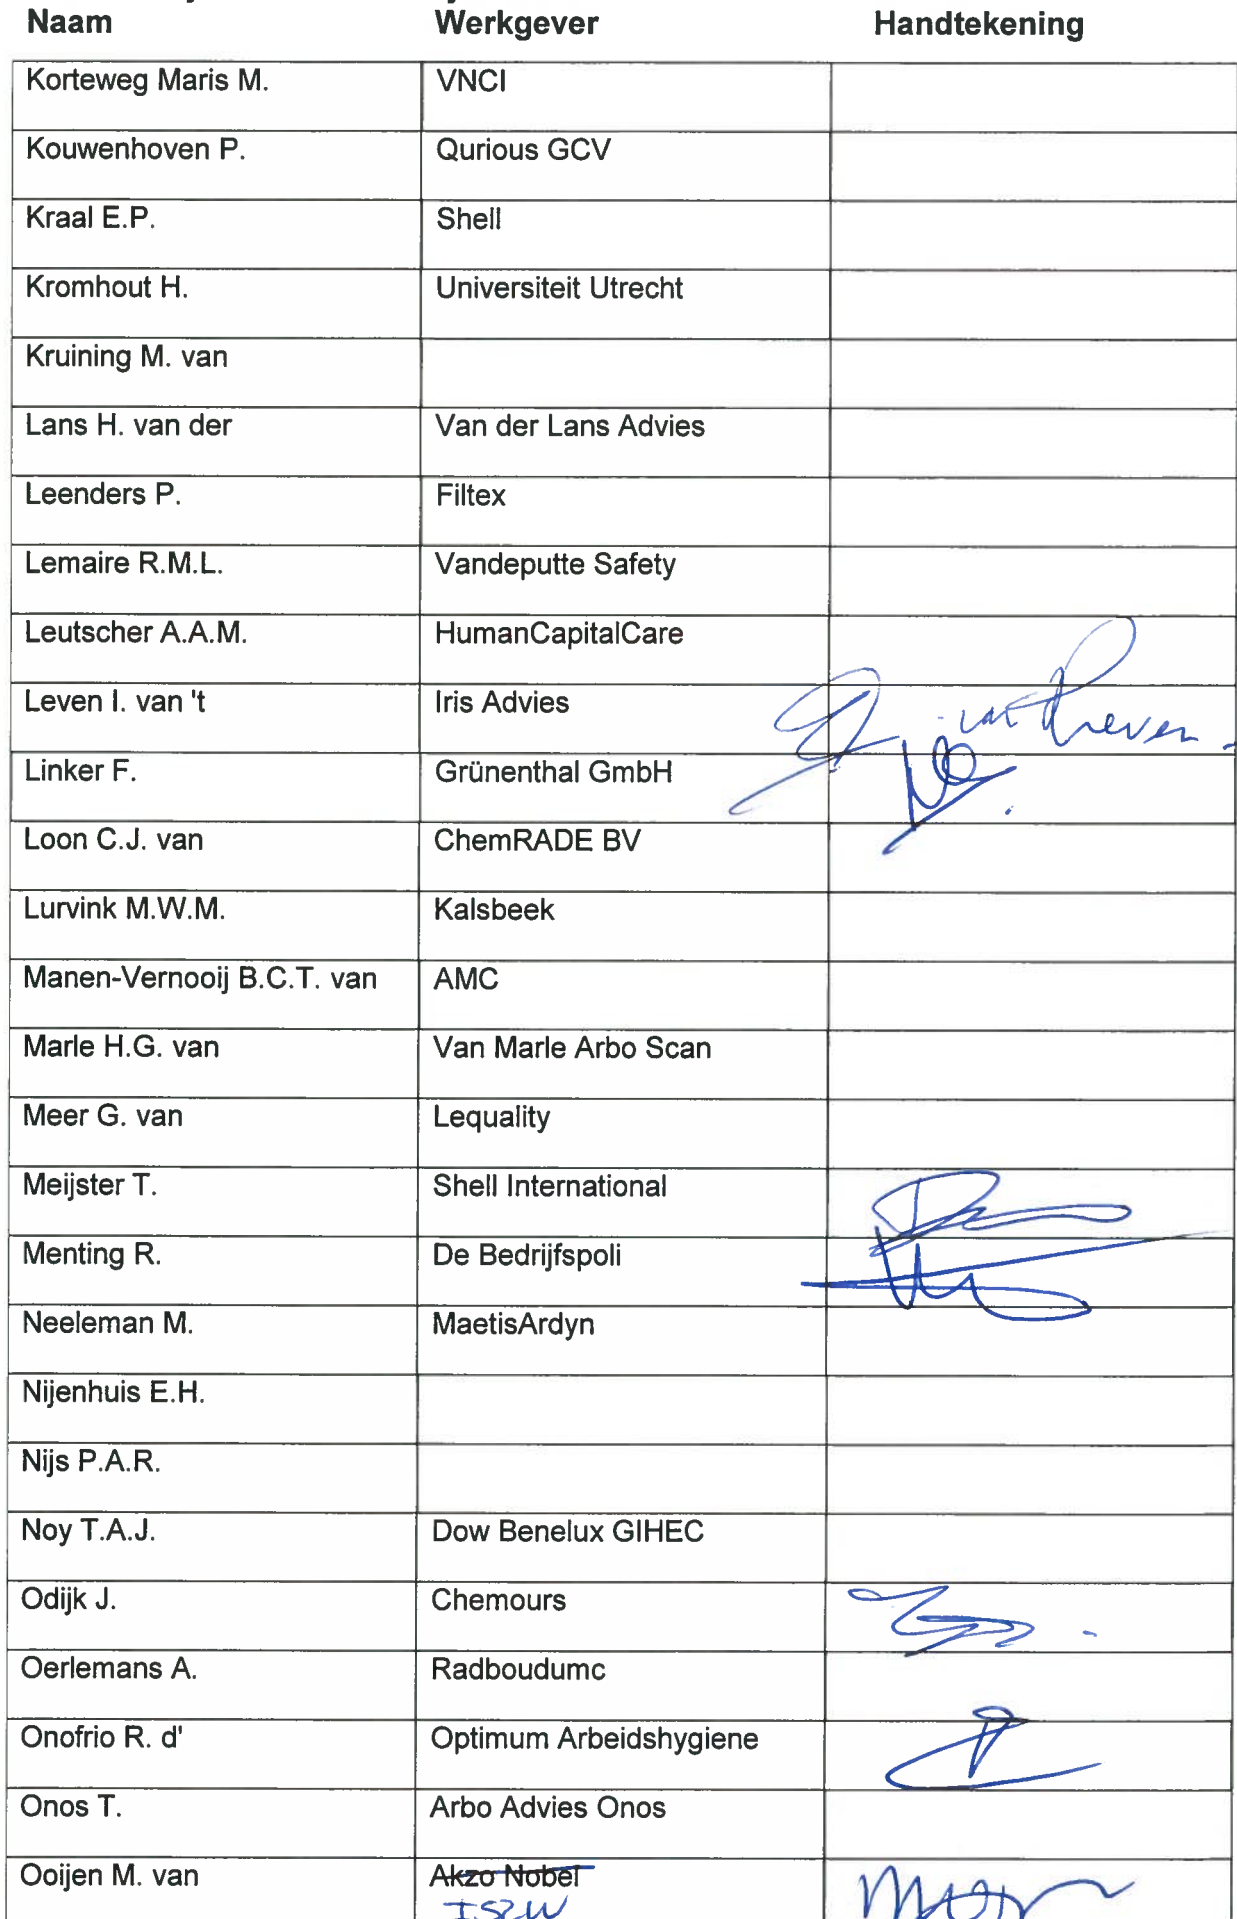 Naam Werkgever Handtekening
Korteweg Maris M. VNCI
Kouwenhoven P. Qurious GCV
Kraal E.P. Shell
Kromhout H. Universiteit Utrecht
Kruining M. van
Lans H. van der Van der Lans Advies
Leenders P. Filtex
Lemaire R.M.L. Vandeputte Safety
Leutscher A.A.M. HumanCapitalCare
Leven I. van 't Iris Advies van 't Leven
Linker F. Grünenthal GmbH
Loon C.J. van ChemRADE BV
Lurvink M.W.M. Kalsbeek
Manen-Vernooij B.C.T. van AMC
Marle H.G. van Van Marle Arbo Scan
Meer G. van Lequality
Meijster T. Shell International
Menting R. De Bedrijfspoli
Neeleman M. MaetisArdyn
Nijenhuis E.H.
Nijs P.A.R.
Noy T.A.J. Dow Benelux GIHEC
Odijk J. Chemours
Oerlemans A. Radboudumc
Onofrio R. d' Optimum Arbeidshygiene
Onos T. Arbo Advies Onos
Ooijen M. van Akzo Nobel
ISZW